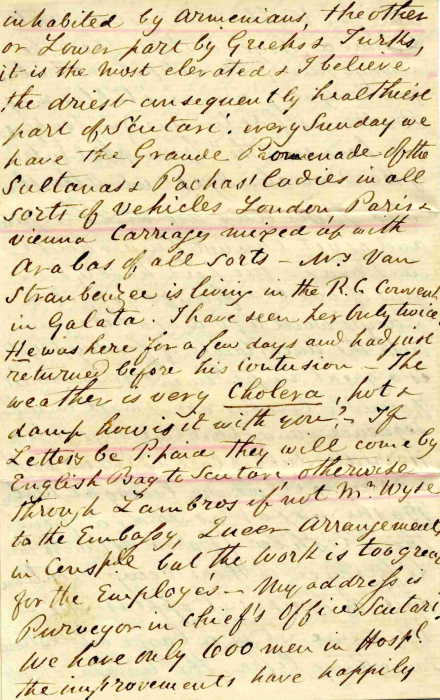 inhabited by Armenians, the other
or Lower part by Greeks & Turks,
it is the most elevated & I believe
the driest consequently healthiest
part of Scutari. every Sunday we
have the Grande Promenade of the
Sultanas & Pachas' Ladies in all
sorts of vehicles London Paris &
Vienna Carriages mixed up with
Arabas of all sorts – Mrs Van
Straubenzee is living in the R.C. Convent
in Galata. I have seen her but twice
He was here for a few days and had just
returned before his contusion – The
weather is very Cholera, hot &
damp how is it with you? – If
Letters be P.paid they will come by
English Bag to Scutari otherwise
through Lambros if not Mr. Wyse
to the Embassy, Queer Arrangements
in Consple but the work is too great
for the Employés – My address is
Purveyor in Chief's Office Scutari
We have only 600 men in Hospl.
the improvements have happily